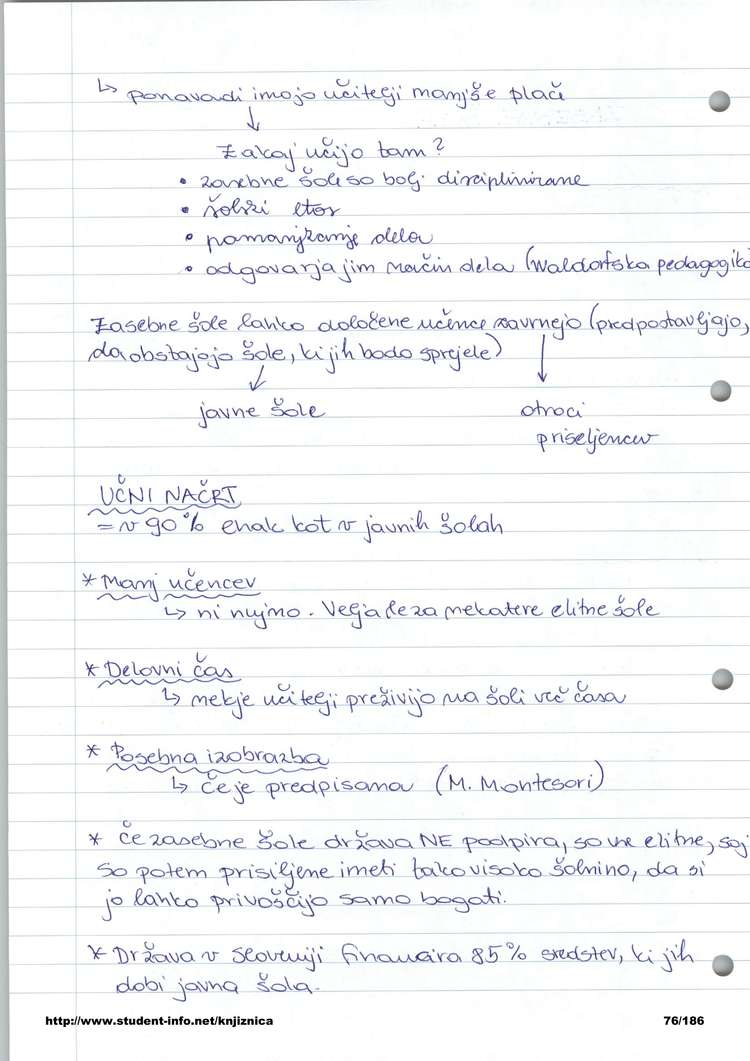 ↳ ponavadi imajo učitelji manjše plače
↓
Zakaj učijo tam?
• zasebne šole so bolj disciplinirane
• šolski etos
• pomanjkanje dela
• odgovarja jim način dela (Waldorfska pedagogika
Zasebne šole lahko določene učence zavrnejo (predpostavljajo,
da obstajajo šole, ki jih bodo sprejele)
javne šole
otroci
priseljencev
UČNI NAČRT
= v 90% enak kot v javnih šolah
* Manj učencev
↳ ni nujno. Velja le za nekatere elitne šole
* Delovni čas
↳ nekje učitelji preživijo na šoli več časa
* Posebna izobrazba
↳ če je predpisana (M. Montesori)
* Če zasebne šole država NE podpira, so vse elitne, saj
so potem prisiljene imeti tako visoko šolnino, da si
jo lahko privoščijo samo bogati.
* Država v Sloveniji financira 85% sredstev, ki jih
dobi javna šola.
http://www.student-info.net/knjiznica 76/186